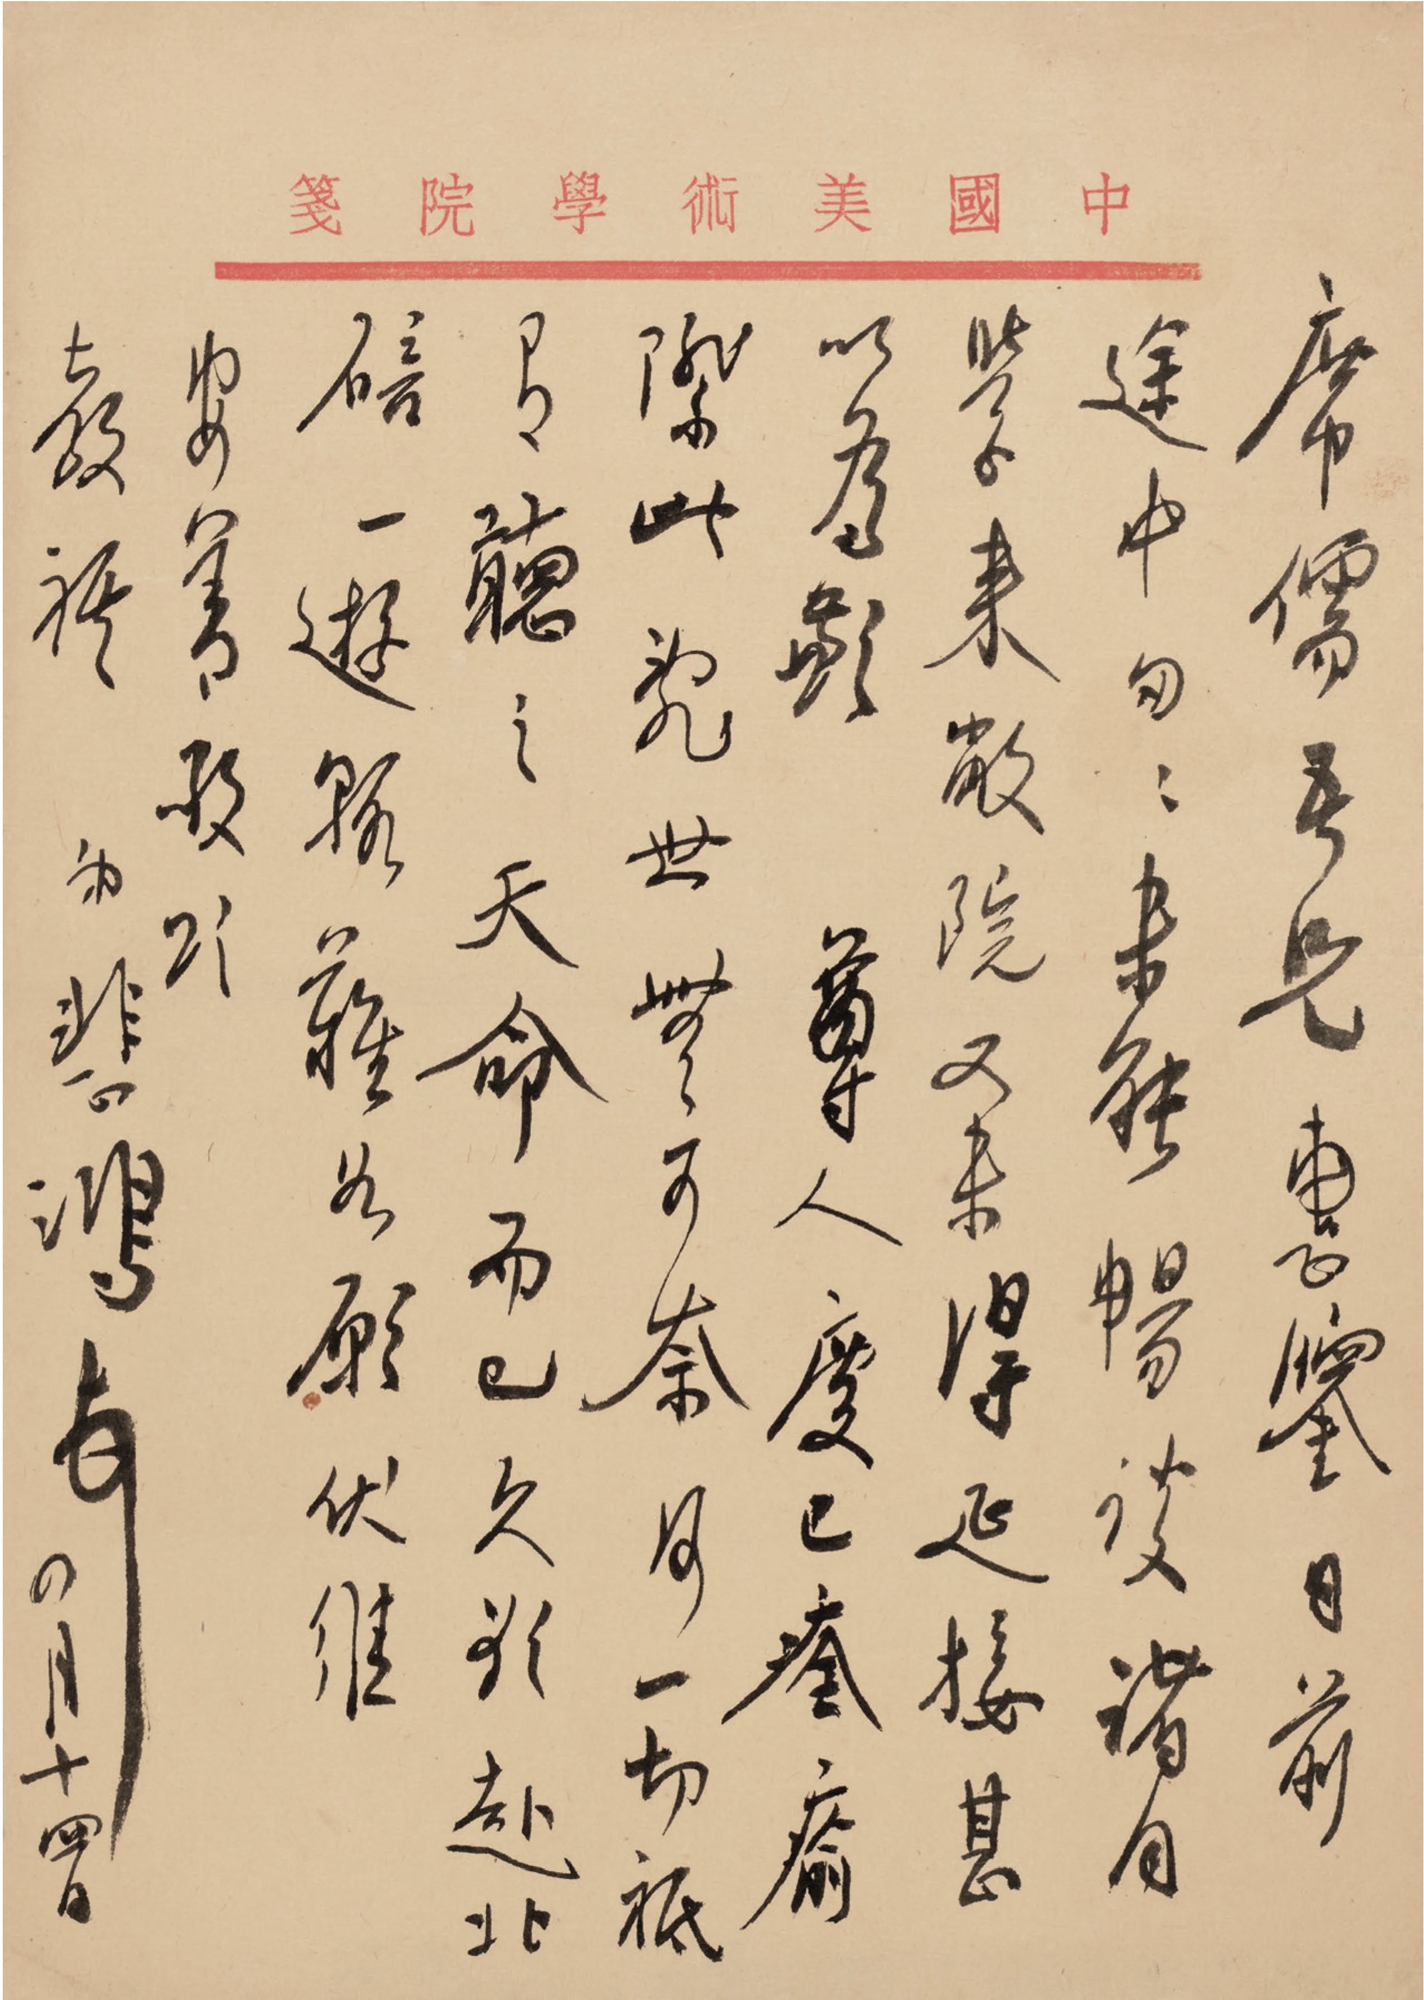 中國美術學院箋
席儒吾兄惠鑒日前
途中匆匆未能暢談諸同
學來敝院又未得延接甚
以為歉 尊人度已痊癒
際此亂世無可奈何一切祗
有聽之天命而已久欲赴北
碚一遊輒難如願伏維
安善敬頌
教祺 弟悲鴻 四月十四日